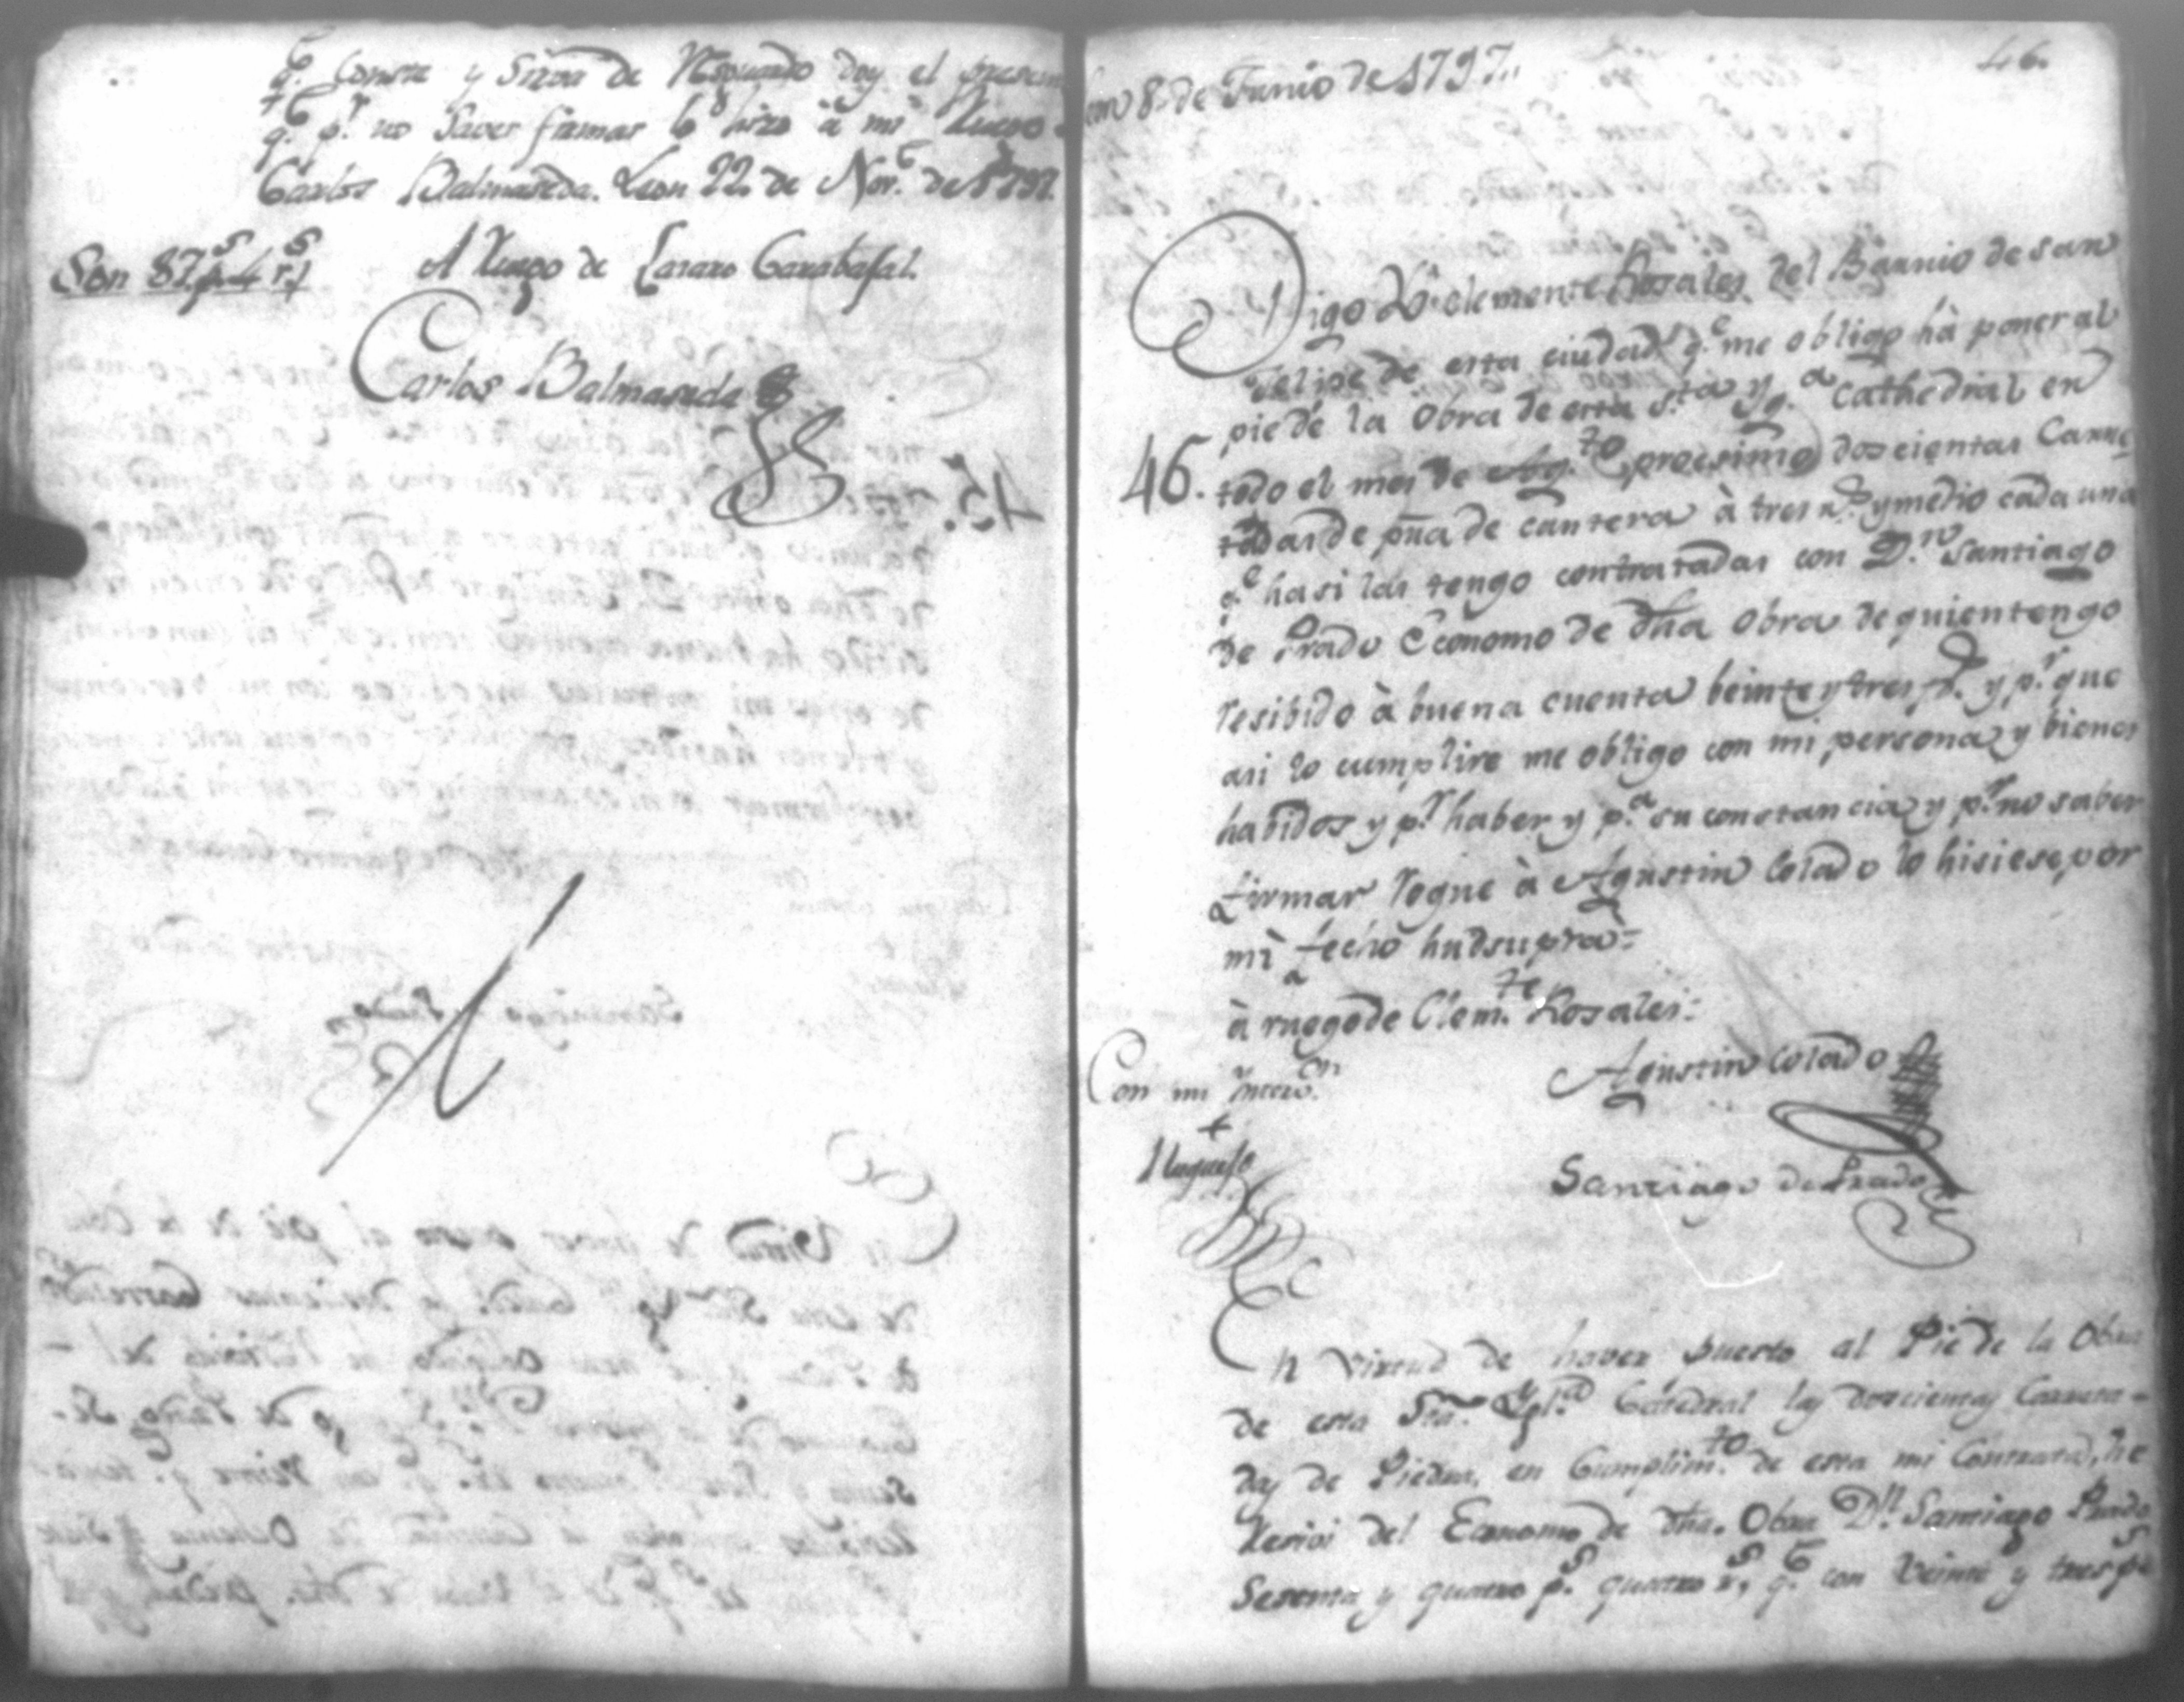 q.e Conste y sirva de Resguardo doy el presen
te q.e p.r no Saver firmar lo hizo á mi Ruego
Carlos Balmaseda. Leon 22. de Nov.e de 1797.
Son 87 p.s 4 r.s
A Ruego de Lazaro Carabajal.
Carlos Balmaseda
46.
Leon 8. de Junio de 1797.
Digo Yo Clemente Rosales del Barrio de San
Felipe de esta ciudad q.e me obligo hà poner al
pie dè la Obra de esta S.ta Yg.a Cathedral en
46. todo el mes de Ag.to procsimo doscientas Carre
tadas de pña de cantera à tres r.s y medio cada una
q.e hasi las tengo contratadas con D.n Santiago
de Prado Economo de dha Obra de quien tengo
resibido à buena cuenta beinte y tres p.s y p.r que
asi lo cumplire me obligo con mi persona y bienes
habidos y p.r haber y p.a su constancia y p.r no saber
firmar rogue à Agustin Colado lo hisiese por
mì fecho hudsupra:
à ruego de Clem.te Rosales:
Con mi Yntervo.n
Agustin Colado
Santiago de Prado
En Virtud de haver puesto al Pie de la Obra
de esta Sta. Ygl.a Catedral las doscientas Carreta-
das de Piedra, en Cumplim.to de esta mi Contrata, he
Resivi del Economo de dha. Obra D.n Santiago Prado
Sesenta y quatro p.s quatro r.s, q.e con Veinte y tres p.s